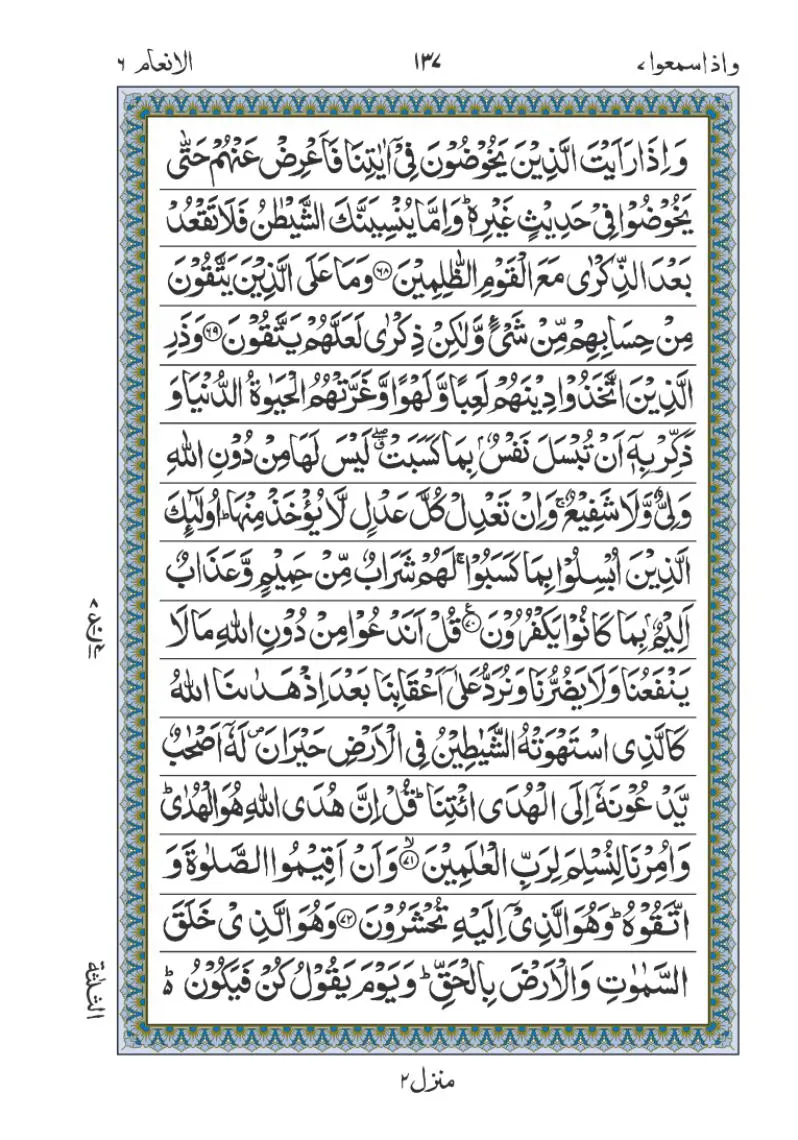 واذاسمعوا ٧
١٣٧
الانعام ٦
وَاِذَا رَاَيْتَ الَّذِيْنَ يَخُوْضُوْنَ فِىْۤ اٰيٰتِنَا فَاَعْرِضْ عَنْهُمْ حَتّٰى
يَخُوْضُوْا فِىْ حَدِيْثٍ غَيْرِهٖ ؕ وَاِمَّا يُنْسِيَنَّكَ الشَّيْطٰنُ فَلَا تَقْعُدْ
بَعْدَ الذِّكْرٰى مَعَ الْقَوْمِ الظّٰلِمِيْنَ ﴿۶۸﴾ وَمَا عَلَى الَّذِيْنَ يَتَّقُوْنَ
مِنْ حِسَابِهِمْ مِّنْ شَىْءٍ وَّلٰكِنْ ذِكْرٰى لَعَلَّهُمْ يَتَّقُوْنَ ﴿۶۹﴾ وَذَرِ
الَّذِيْنَ اتَّخَذُوْا دِيْنَهُمْ لَعِبًا وَّلَهْوًا وَّغَرَّتْهُمُ الْحَيٰوةُ الدُّنْيَا وَ
ذَكِّرْ بِهٖۤ اَنْ تُبْسَلَ نَفْسٌۢ بِمَا كَسَبَتْ ۖۗ لَيْسَ لَهَا مِنْ دُوْنِ اللّٰهِ
وَلِىٌّ وَّلَا شَفِيْعٌ ۚ وَاِنْ تَعْدِلْ كُلَّ عَدْلٍ لَّا يُؤْخَذْ مِنْهَا ؕ اُولٰٓئِكَ
الَّذِيْنَ اُبْسِلُوْا بِمَا كَسَبُوْا ۚ لَهُمْ شَرَابٌ مِّنْ حَمِيْمٍ وَّعَذَابٌ
اَلِيْمٌۢ بِمَا كَانُوْا يَكْفُرُوْنَ ﴿۷۰﴾ قُلْ اَنَدْعُوْا مِنْ دُوْنِ اللّٰهِ مَا لَا
يَنْفَعُنَا وَلَا يَضُرُّنَا وَنُرَدُّ عَلٰٓى اَعْقَابِنَا بَعْدَ اِذْ هَدٰىنَا اللّٰهُ
كَالَّذِى اسْتَهْوَتْهُ الشَّيٰطِيْنُ فِى الْاَرْضِ حَيْرَانَ ۖ لَهٗۤ اَصْحٰبٌ
يَّدْعُوْنَهٗۤ اِلَى الْهُدَى ائْتِنَا ؕ قُلْ اِنَّ هُدَى اللّٰهِ هُوَ الْهُدٰى ؕ
وَاُمِرْنَا لِنُسْلِمَ لِرَبِّ الْعٰلَمِيْنَ ۙ﴿۷۱﴾ وَاَنْ اَقِيْمُوا الصَّلٰوةَ وَ
اتَّقُوْهُ ؕ وَهُوَ الَّذِىْۤ اِلَيْهِ تُحْشَرُوْنَ ﴿۷۲﴾ وَهُوَ الَّذِىْ خَلَقَ
السَّمٰوٰتِ وَالْاَرْضَ بِالْحَقِّ ؕ وَيَوْمَ يَقُوْلُ كُنْ فَيَكُوْنُ ؕ
الثلثة
منزل ٢